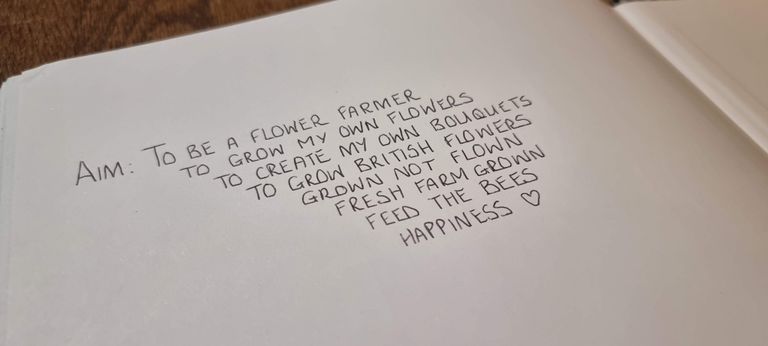 AIM: TO BE A FLOWER FARMER
TO GROW MY OWN FLOWERS
TO CREATE MY OWN BOUQUETS
TO GROW BRITISH FLOWERS
GROWN NOT FLOWN
FRESH FARM GROWN
FEED THE BEES
HAPPINESS ♡